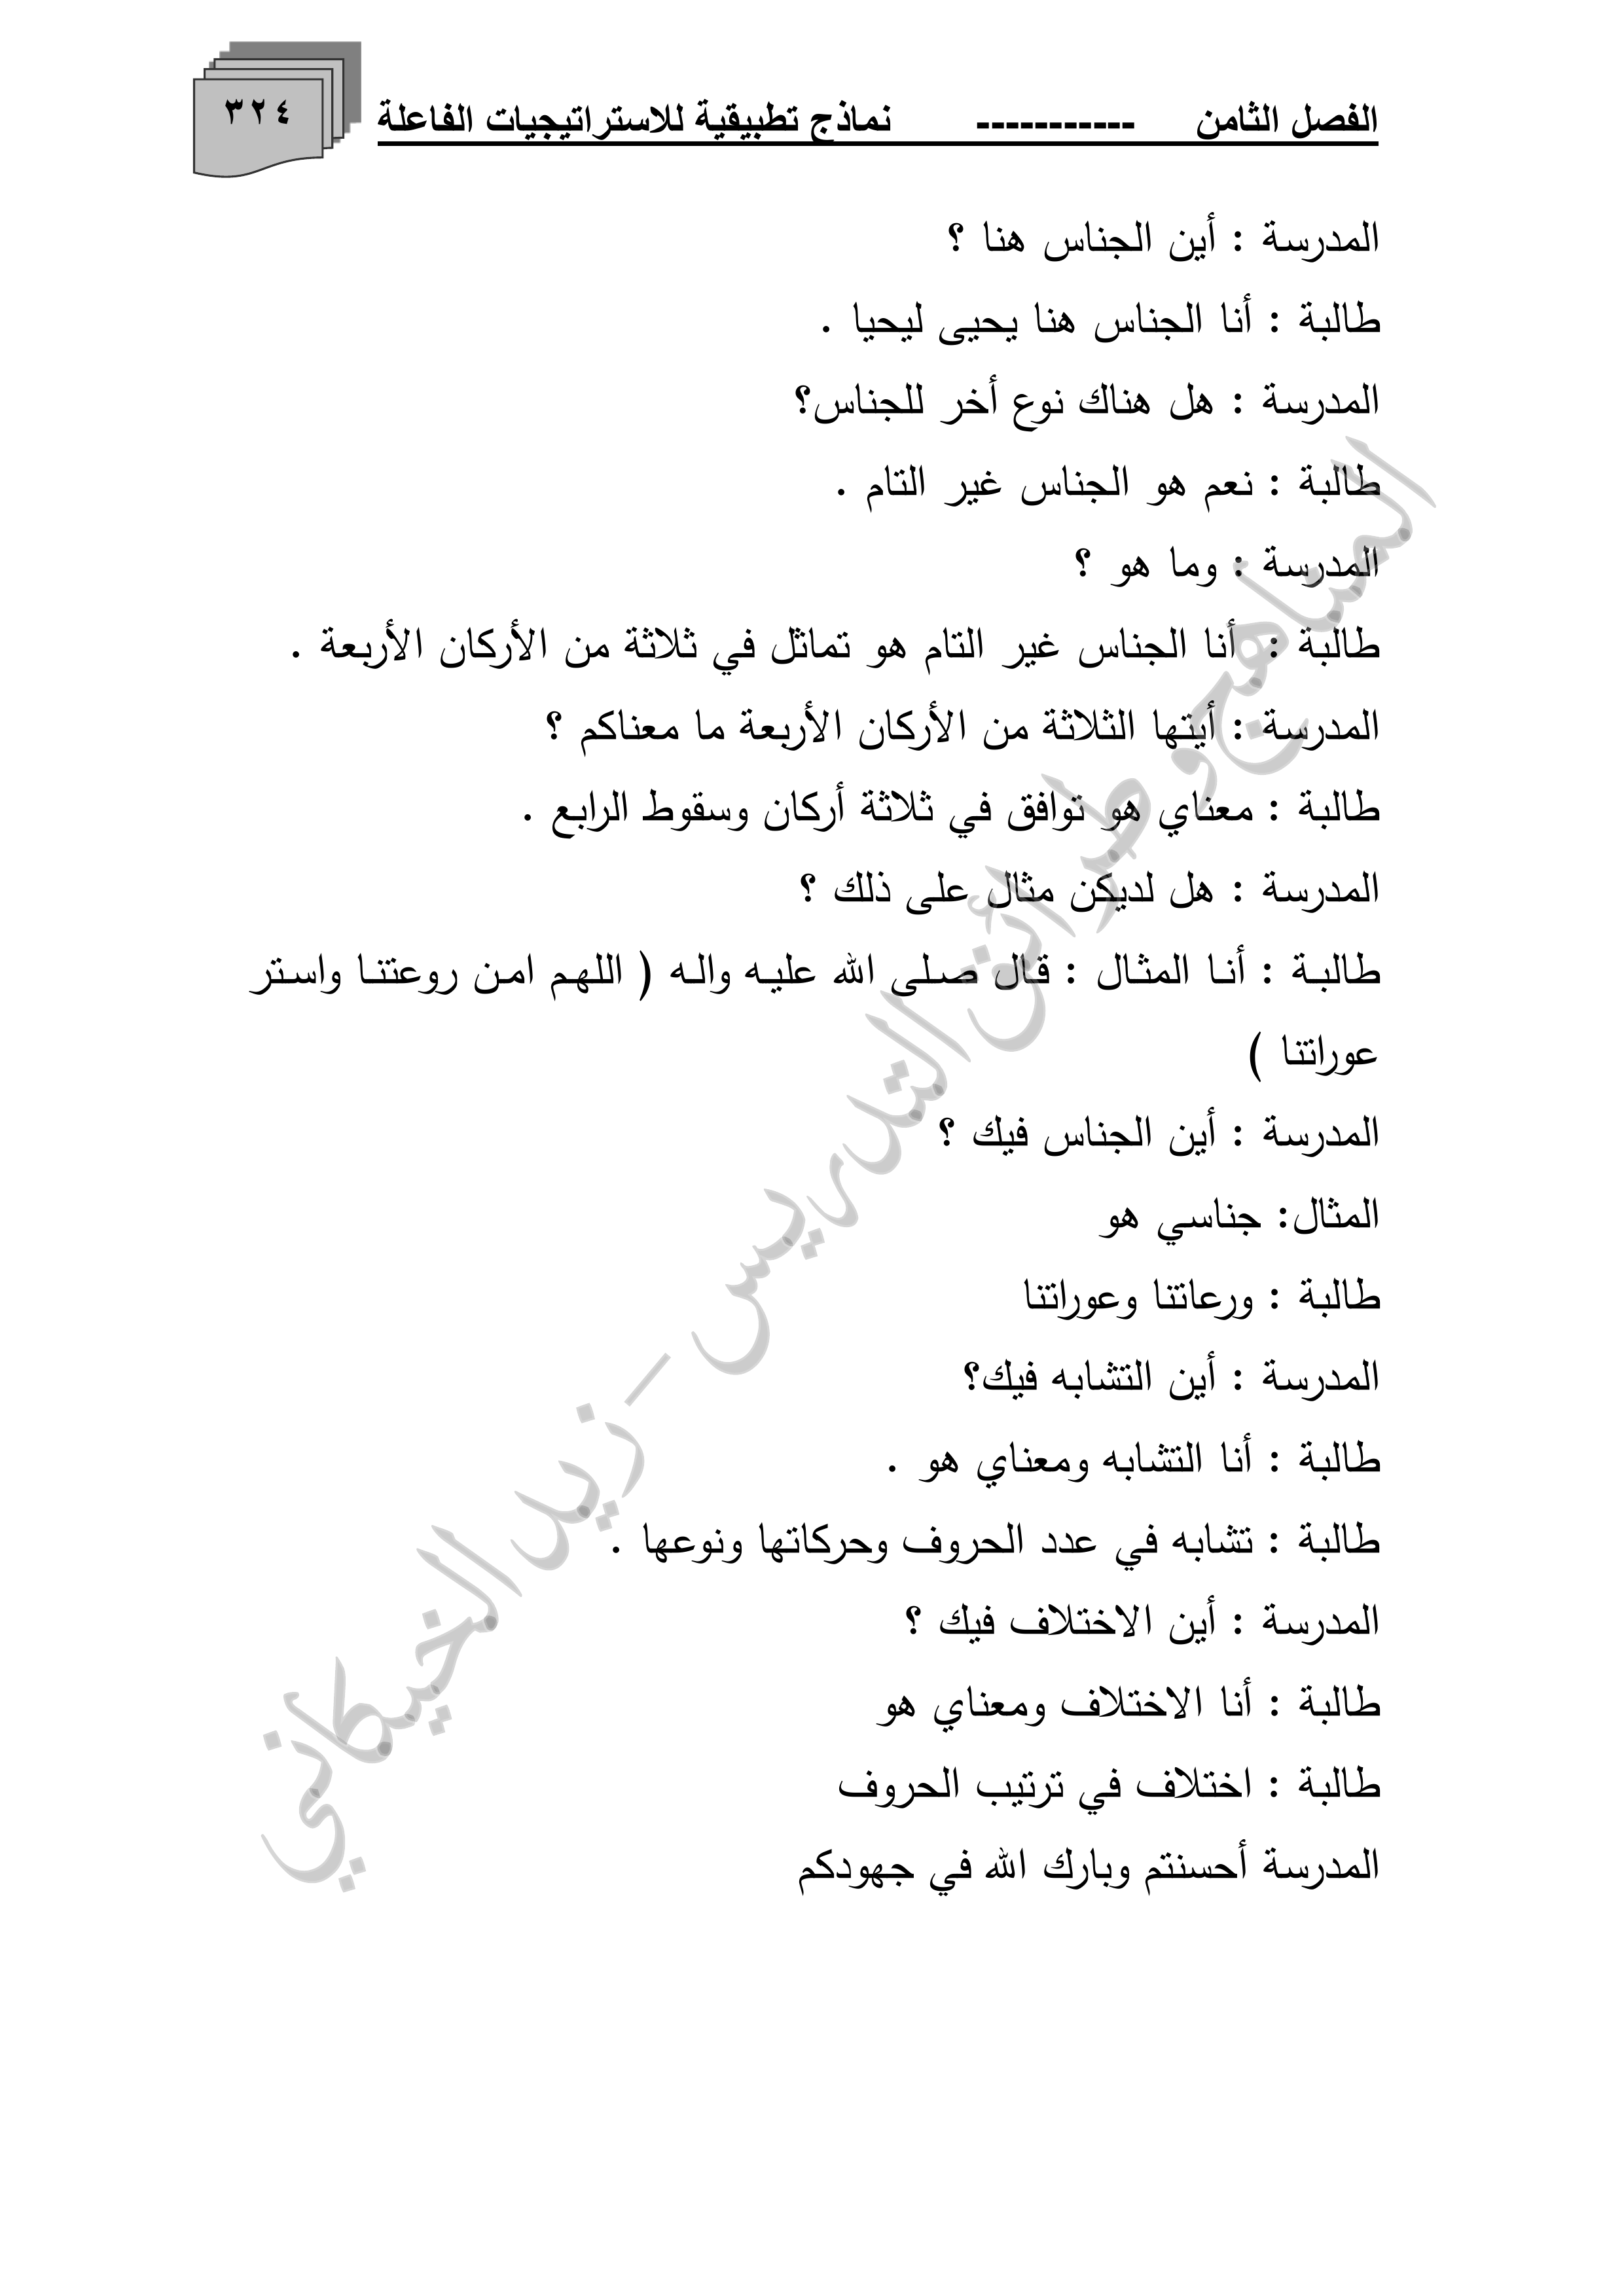 الفصل الثامن ----------- نماذج تطبيقية للاستراتيجيات الفاعلة ٣٢٤
المدرسة : أين الجناس هنا ؟
طالبة : أنا الجناس هنا يحيى ليحيا .
المدرسة : هل هناك نوع أخر للجناس؟
طالبة : نعم هو الجناس غير التام .
المدرسة : وما هو ؟
طالبة : أنا الجناس غير التام هو تماثل في ثلاثة من الأركان الأربعة .
المدرسة : أيتها الثلاثة من الأركان الأربعة ما معناكم ؟
طالبة : معناي هو توافق في ثلاثة أركان وسقوط الرابع .
المدرسة : هل لديكن مثال على ذلك ؟
طالبة : أنا المثال : قال صلى الله عليه واله ( اللهم امن روعتنا واستر
عوراتنا )
المدرسة : أين الجناس فيك ؟
المثال: جناسي هو
طالبة : ورعاتنا وعوراتنا
المدرسة : أين التشابه فيك؟
طالبة : أنا التشابه ومعناي هو .
طالبة : تشابه في عدد الحروف وحركاتها ونوعها .
المدرسة : أين الاختلاف فيك ؟
طالبة : أنا الاختلاف ومعناي هو
طالبة : اختلاف في ترتيب الحروف
المدرسة أحسنتم وبارك الله في جهودكم
المناهج وطرائق التدريس - زيد الخيكاني